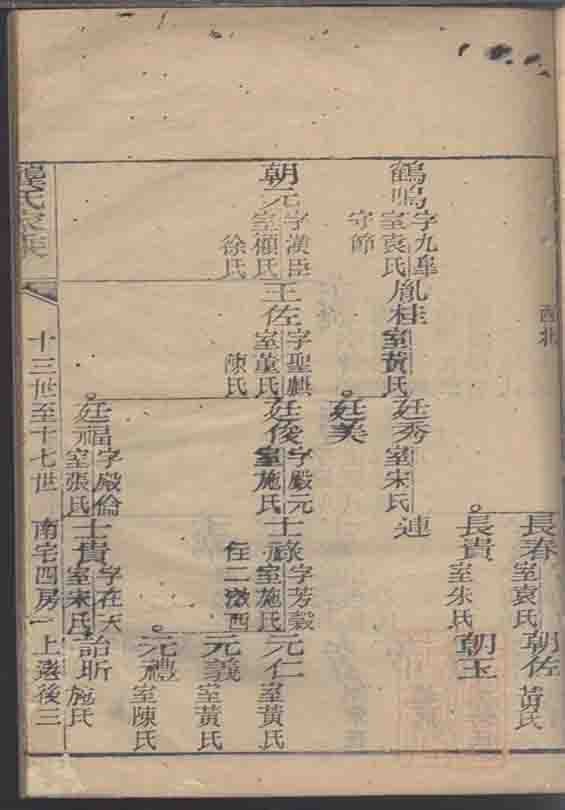 西北
長春
室袁氏
朝佐
黃氏
長貴
室朱氏
朝玉
鶴鳴
字九皐
室袁氏
守節
胤桂
室黃氏
廷秀
室宋氏
連
廷美
朝元
字漢臣
室顧氏
徐氏
王佐
字聖麒
室董氏
陳氏
廷俊
字嚴元
室施氏
士祿
字芳穀
室施氏
住二漖西
元仁
室黃氏
元義
室黃氏
元禮
室陳氏
廷福
字嚴倫
室張氏
士貴
字在天
室宋氏
詒昕
施氏
龔氏家乘
十三世至十七世
南宅四房